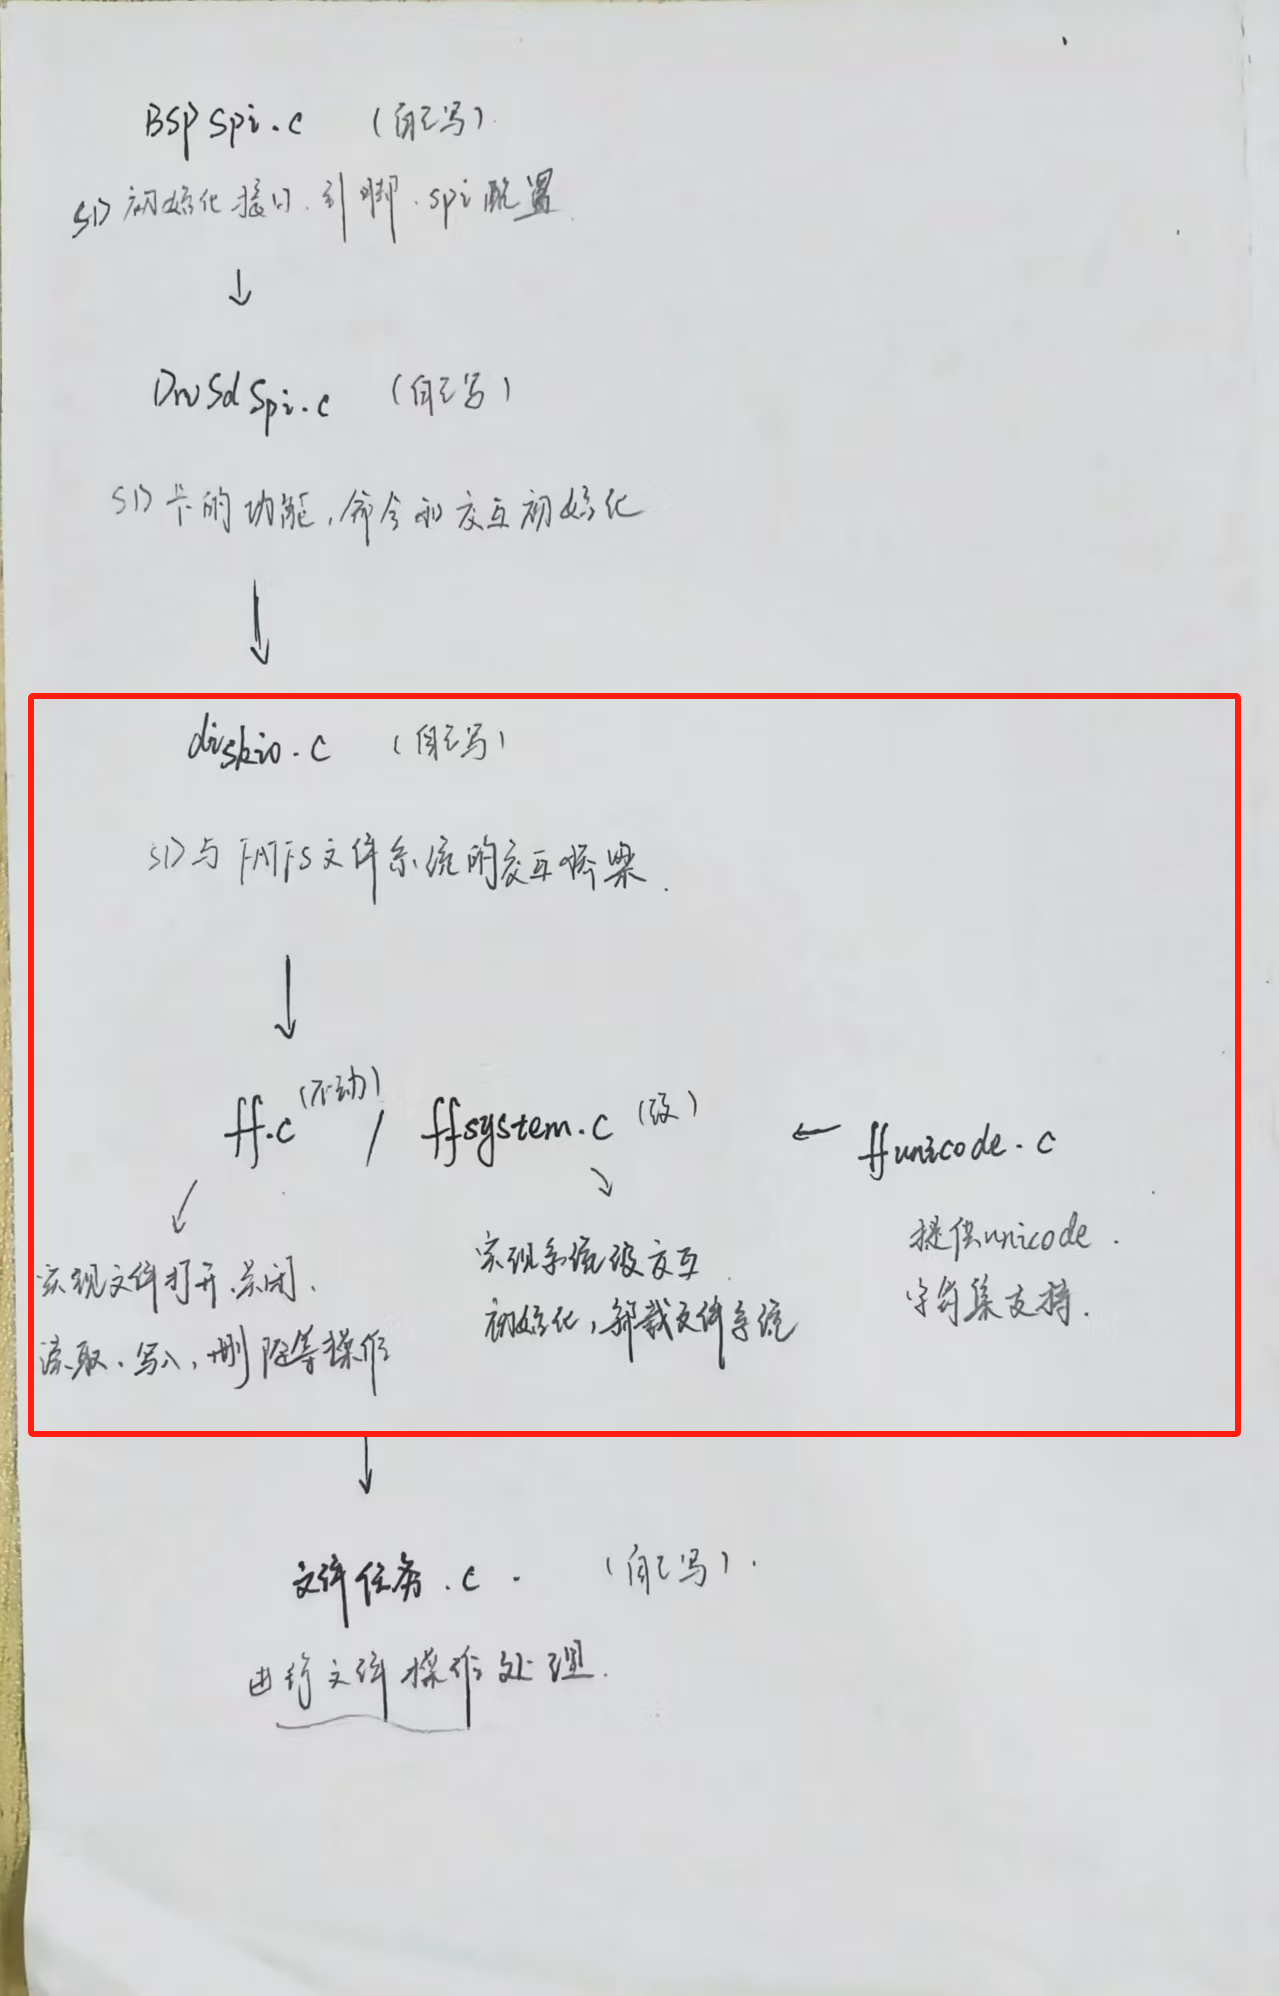 BSP Spi.c （自己写）
SD 初始化接口、引脚、spi配置
DrvSdSpi.c （自己写）
SD卡的功能，命令和交互初始化
diskio.c （自己写）
SD与FATFS文件系统的交互桥梁.
ff.c（不动） / ffsystem.c（改） ← ffunicode.c
实现文件打开、关闭、
读取、写入，删除等操作
实现系统级交互
初始化，卸载文件系统
提供unicode.
字符集支持.
文件任务.c. （自己写）.
进行文件操作处理.